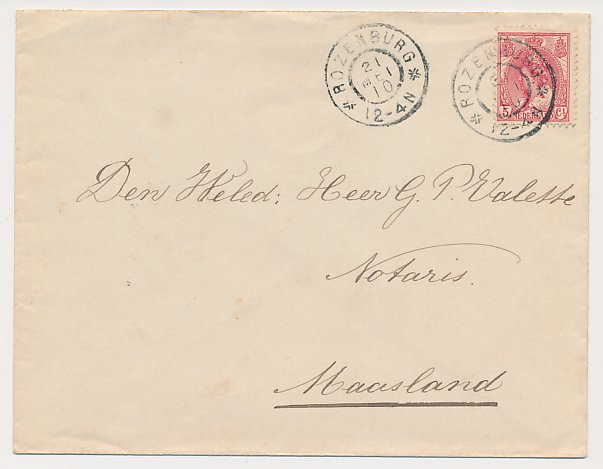 ROZENBURG
21
MEI
10
12-4N
ROZENBURG
12-4N
5 NEDERLAND Ct
Den Weled: Heer G. P. Valette
Notaris.
Maasland